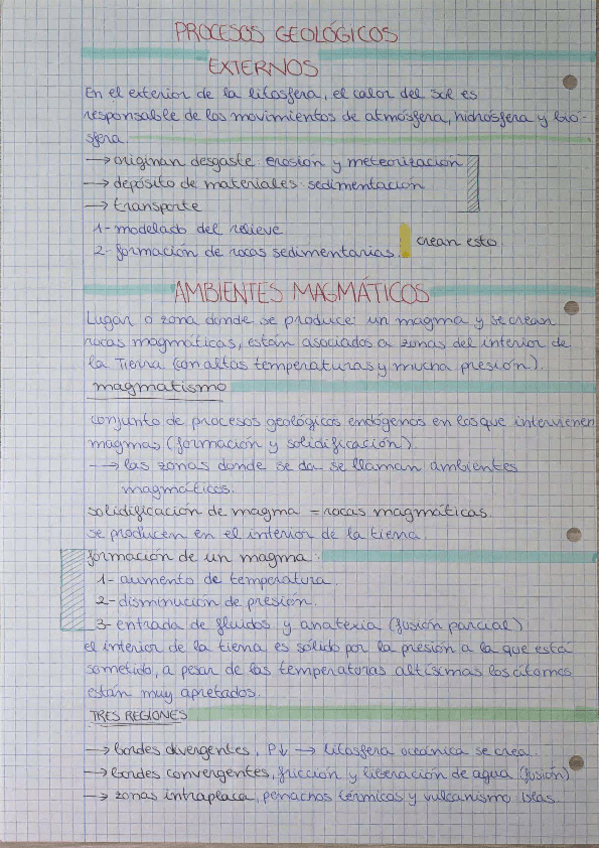 PROCESOS GEOLÓGICOS
EXTERNOS
En el exterior de la litosfera, el calor del sol es
responsable de los movimientos de atmósfera, hidrósfera y bio-
sfera.
→ originan desgaste: erosión y meteorización
→ depósito de materiales: sedimentación
→ transporte
1- modelado del relieve
2- formación de rocas sedimentarias.
crean esto
AMBIENTES MAGMÁTICOS
Lugar o zona donde se produce un magma y se crean
rocas magmáticas, están asociados a zonas del interior de
la Tierra (con altas temperaturas y mucha presión).
magmatismo
conjunto de procesos geológicos endógenos en los que intervienen
magmas (formación y solidificación).
→ las zonas donde se da se llaman ambientes
magmáticos.
solidificación de magma = rocas magmáticas.
se producen en el interior de la tierra
formación de un magma:
1- aumento de temperatura.
2- disminución de presión.
3- entrada de fluidos y anatexia (fusión parcial)
el interior de la tierra es sólido por la presión a la que está
sometido, a pesar de las temperaturas altísimas los átomos
están muy apretados.
TRES REGIONES
→ bordes divergentes, P↓ → litosfera oceánica se crea.
→ bordes convergentes, fricción y liberación de agua (fusión)
→ zonas intraplaca, penachos térmicos y vulcanismo islas.